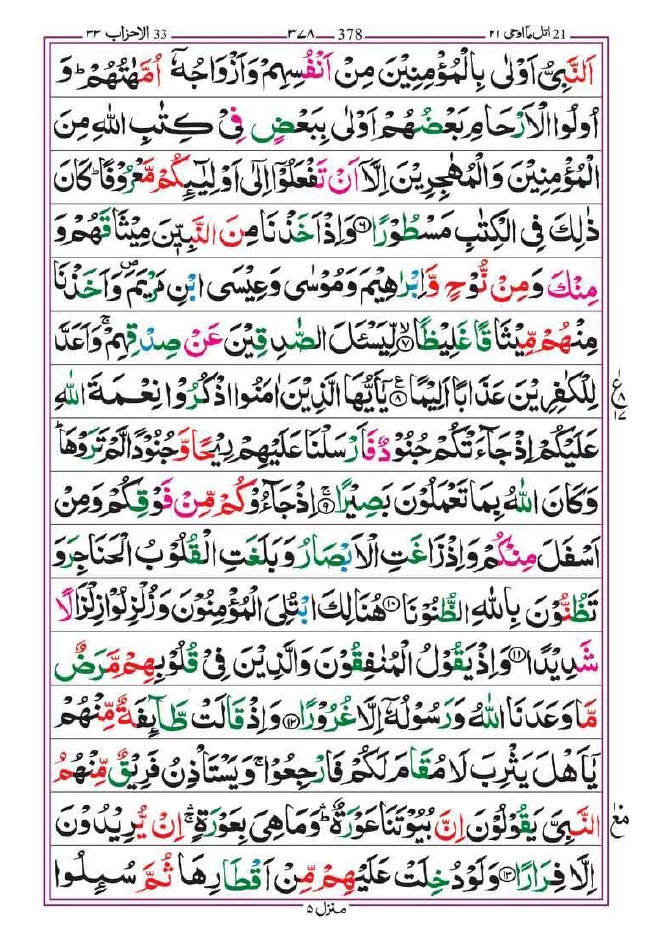 21 اتل ما اوحی ۲۱ 378 ۳۷۸ 33 الاحزاب ۳۳
اَلنَّبِیُّ اَوْلٰی بِالْمُؤْمِنِیْنَ مِنْ اَنْفُسِهِمْ وَاَزْوَاجُهٗۤ اُمَّهٰتُهُمْ ؕ وَ
اُولُوا الْاَرْحَامِ بَعْضُهُمْ اَوْلٰی بِبَعْضٍ فِیْ كِتٰبِ اللّٰهِ مِنَ
الْمُؤْمِنِیْنَ وَالْمُهٰجِرِیْنَ اِلَّاۤ اَنْ تَفْعَلُوْۤا اِلٰۤی اَوْلِیٰٓىِٕكُمْ مَّعْرُوْفًا ؕ كَانَ
ذٰلِكَ فِی الْكِتٰبِ مَسْطُوْرًا ۶ وَاِذْ اَخَذْنَا مِنَ النَّبِیّٖنَ مِیْثَاقَهُمْ وَ
مِنْكَ وَمِنْ نُّوْحٍ وَّاِبْرٰهِیْمَ وَمُوْسٰی وَعِیْسَی ابْنِ مَرْیَمَ ۪ وَاَخَذْنَا
مِنْهُمْ مِّیْثَاقًا غَلِیْظًا ۷ۙ لِّیَسْـَٔلَ الصّٰدِقِیْنَ عَنْ صِدْقِهِمْ ۚ وَاَعَدَّ
لِلْكٰفِرِیْنَ عَذَابًا اَلِیْمًا ۸ ع یٰۤاَیُّهَا الَّذِیْنَ اٰمَنُوا اذْكُرُوْا نِعْمَةَ اللّٰهِ
عَلَیْكُمْ اِذْ جَآءَتْكُمْ جُنُوْدٌ فَاَرْسَلْنَا عَلَیْهِمْ رِیْحًا وَّجُنُوْدًا لَّمْ تَرَوْهَا ؕ
وَكَانَ اللّٰهُ بِمَا تَعْمَلُوْنَ بَصِیْرًا ۹ۚ اِذْ جَآءُوْكُمْ مِّنْ فَوْقِكُمْ وَمِنْ
اَسْفَلَ مِنْكُمْ وَاِذْ زَاغَتِ الْاَبْصَارُ وَبَلَغَتِ الْقُلُوْبُ الْحَنَاجِرَ وَ
تَظُنُّوْنَ بِاللّٰهِ الظُّنُوْنَا ۱۰ هُنَالِكَ ابْتُلِیَ الْمُؤْمِنُوْنَ وَزُلْزِلُوْا زِلْزَالًا
شَدِیْدًا ۱۱ وَاِذْ یَقُوْلُ الْمُنٰفِقُوْنَ وَالَّذِیْنَ فِیْ قُلُوْبِهِمْ مَّرَضٌ
مَّا وَعَدَنَا اللّٰهُ وَرَسُوْلُهٗۤ اِلَّا غُرُوْرًا ۱۲ وَاِذْ قَالَتْ طَّآىِٕفَةٌ مِّنْهُمْ
یٰۤاَهْلَ یَثْرِبَ لَا مُقَامَ لَكُمْ فَارْجِعُوْا ۚ وَیَسْتَاْذِنُ فَرِیْقٌ مِّنْهُمُ
النَّبِیَّ یَقُوْلُوْنَ اِنَّ بُیُوْتَنَا عَوْرَةٌ ؕۛ وَمَا هِیَ بِعَوْرَةٍ ۛۚ اِنْ یُّرِیْدُوْنَ
اِلَّا فِرَارًا ۱۳ وَلَوْ دُخِلَتْ عَلَیْهِمْ مِّنْ اَقْطَارِهَا ثُمَّ سُىِٕلُوا
منزل ۵